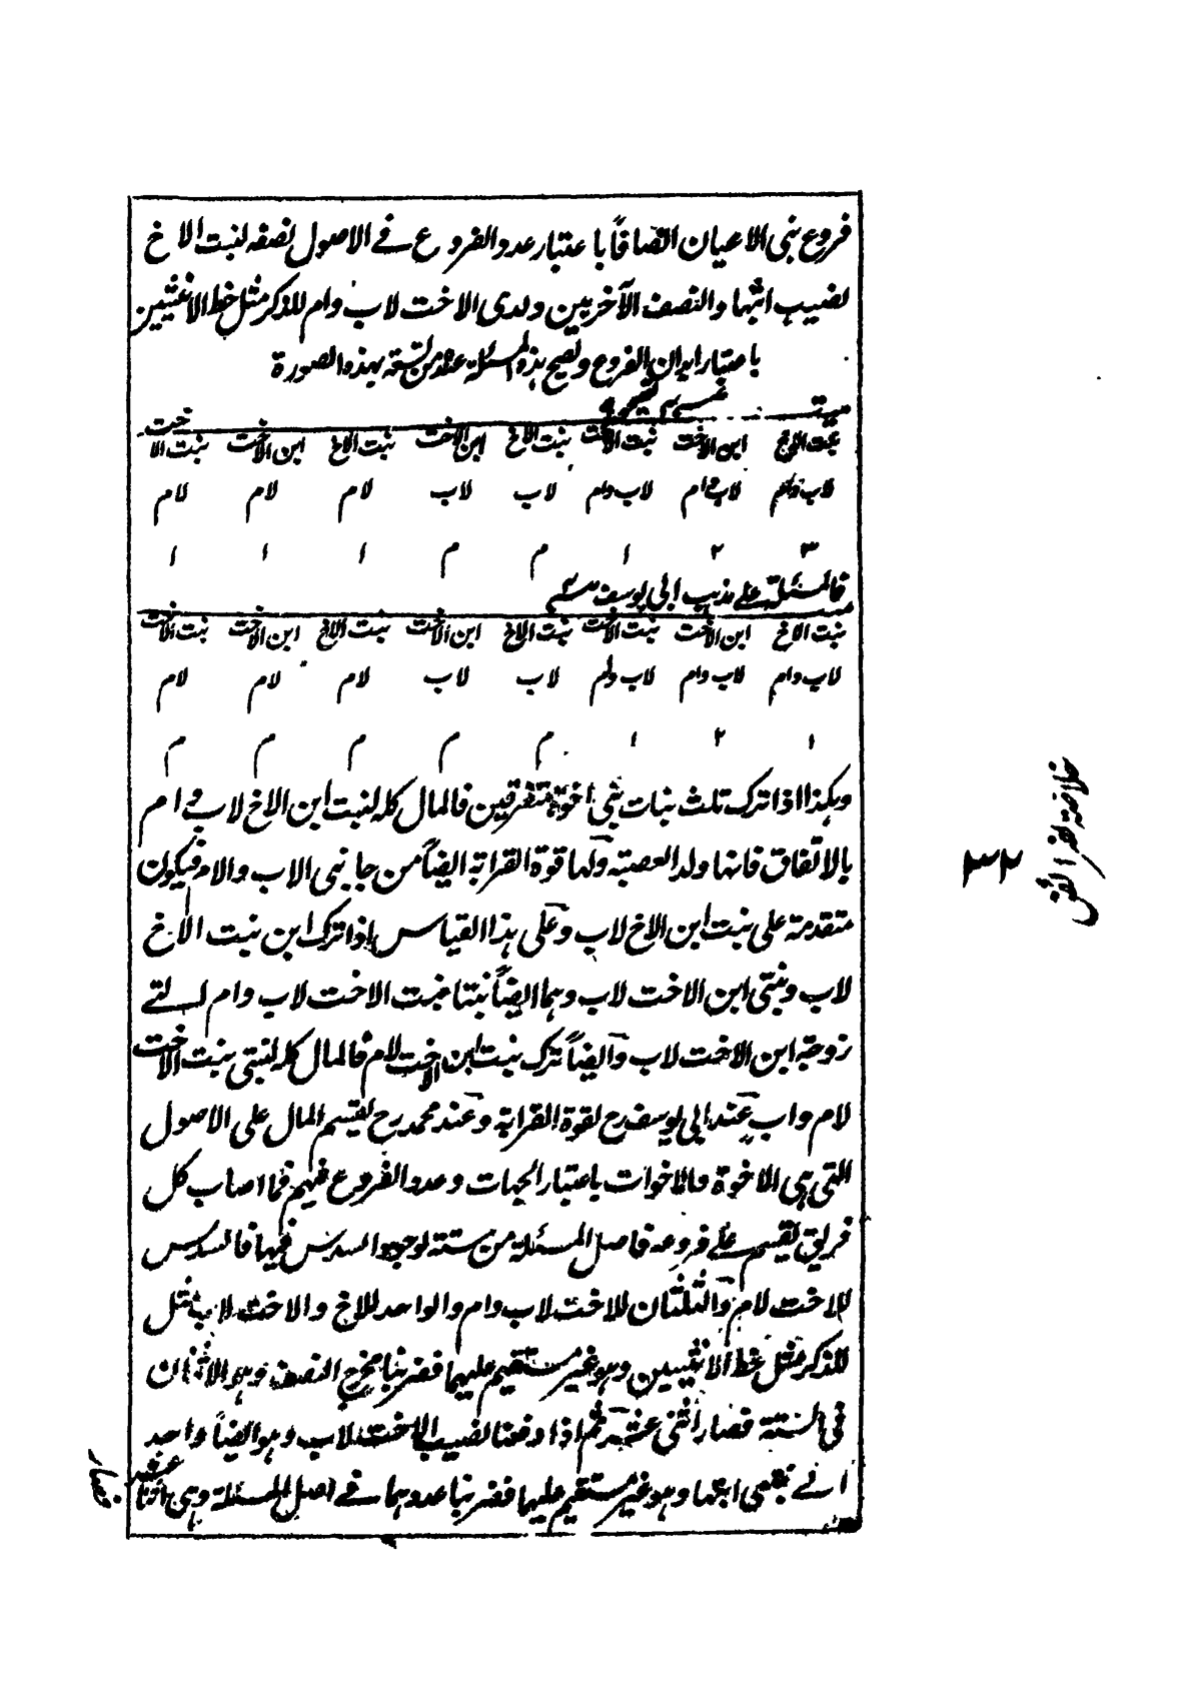 فروع بنی الاعیان انصافاً باعتبار عدد الفروع فے الاصول نصفه لبنت الاخ
نصیب ابیها والنصف الآخر بین ولدی الاخت لاب وام للذکر مثل حظ الانثیین
باعتبار ابدان الفروع وتصح هذه المسئلة عنده من تسعة بهذه الصورة
میتـ
بنت الاخ ابن الاخت بنت الاخت بنت الاخ ابن الاخت بنت الاخ ابن الاخت بنت الاخت
لاب وام لاب وام لاب وام لاب لاب لام لام لام
۳ ۲ ۱ م م ۱ ۱ ۱
فالمسئلة علے مذهب ابی یوسف
بنت الاخ ابن الاخت بنت الاخت بنت الاخ ابن الاخت بنت الاخ ابن الاخت بنت الاخت
لاب وام لاب وام لاب وام لاب لاب لام لام لام
۱ ۲ ۱ م م م م م
وهکذا اذا ترک ثلث بنات بنی اخوة متفرقین فالمال کله لبنت ابن الاخ لاب وام
بالاتفاق فانها ولد العصبة ولها قوة القرابة ایضاً من جانبی الاب والام فیکون
متقدمة علی بنت ابن الاخ لاب وعلی هذا القیاس اذا ترک ابن بنت الاخ
لاب وبنتی ابن الاخت لاب وهما ایضاً بنتا بنت الاخت لاب وام التے
زوجة ابن الاخت لاب وایضاً ترک بنت ابن الاخت لام فالمال کله لبنتی بنت الاخت
لام واب عند ابی یوسف رح لقوة القرابة وعند محمد رح یقسم المال علی الاصول
التی هی الاخوة والاخوات باعتبار الجهات وعدد الفروع فیهم فما اصاب کل
فریق یقسم علے فروعه فاصل المسئلة من ستة لوجود السدس فیها فالسدس
للاخت لام والثلثان للاخت لاب وام والواحد للاخ والاخت لاب مثل
للذکر مثل حظ الانثیین وهو غیر مستقیم علیهما فضربنا مخرج النصف وهو الاثنان
فی الستة فصار اثنی عشر ثم اذا دفعنا نصیب الاخت لاب وهو ایضاً واحد
الے بنتی ابنها وهو غیر مستقیم علیهما فضربنا عددهما فے اصل المسئلة وهی اثنا عشر
فصار
۳۲